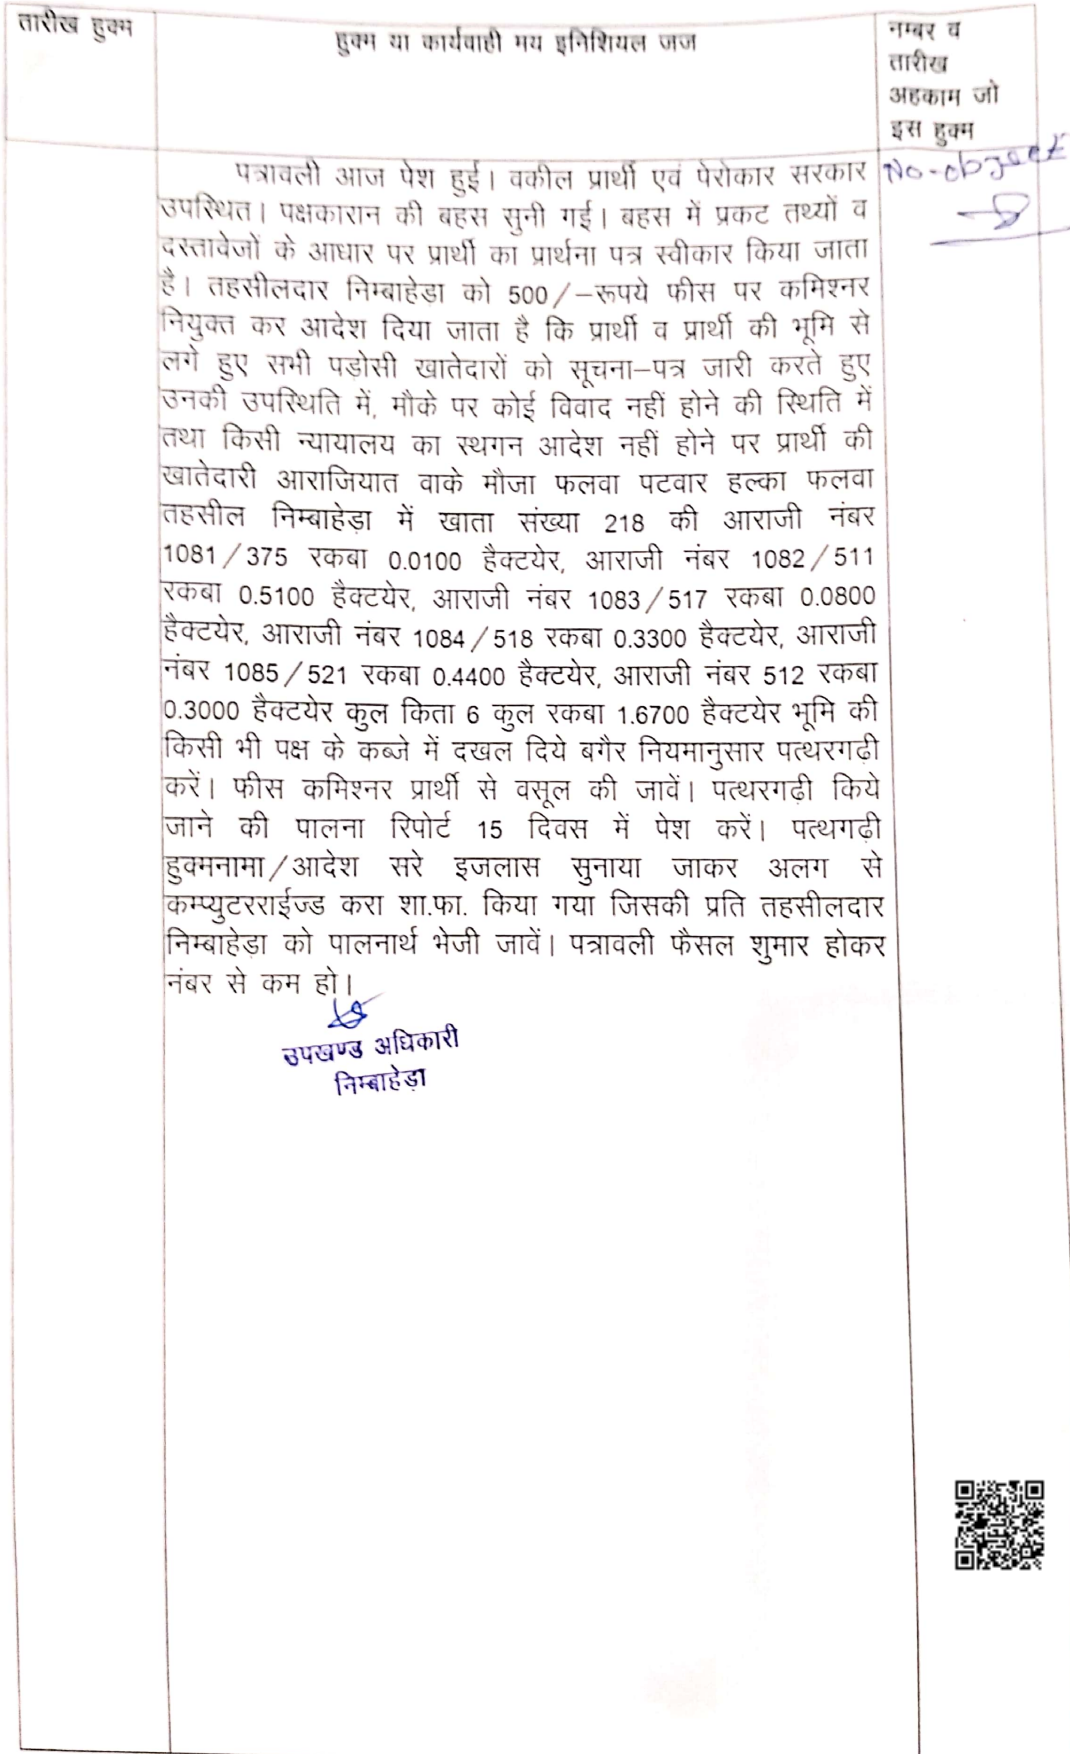 तारीख हुक्म
हुक्म या कार्यवाही मय इनिशियल जज
नम्बर व
तारीख
अहकाम जो
इस हुक्म
No-object
पत्रावली आज पेश हुई। वकील प्रार्थी एवं पेरोकार सरकार
उपस्थित। पक्षकारान की बहस सुनी गई। बहस में प्रकट तथ्यों व
दस्तावेजों के आधार पर प्रार्थी का प्रार्थना पत्र स्वीकार किया जाता
है। तहसीलदार निम्बाहेड़ा को 500/–रूपये फीस पर कमिश्नर
नियुक्त कर आदेश दिया जाता है कि प्रार्थी व प्रार्थी की भूमि से
लगे हुए सभी पड़ोसी खातेदारों को सूचना–पत्र जारी करते हुए
उनकी उपस्थिति में, मौके पर कोई विवाद नहीं होने की स्थिति में
तथा किसी न्यायालय का स्थगन आदेश नहीं होने पर प्रार्थी की
खातेदारी आराजियात वाके मौजा फलवा पटवार हल्का फलवा
तहसील निम्बाहेड़ा में खाता संख्या 218 की आराजी नंबर
1081/375 रकबा 0.0100 हैक्टयेर, आराजी नंबर 1082/511
रकबा 0.5100 हैक्टयेर, आराजी नंबर 1083/517 रकबा 0.0800
हैक्टयेर, आराजी नंबर 1084/518 रकबा 0.3300 हैक्टयेर, आराजी
नंबर 1085/521 रकबा 0.4400 हैक्टयेर, आराजी नंबर 512 रकबा
0.3000 हैक्टयेर कुल किता 6 कुल रकबा 1.6700 हैक्टयेर भूमि की
किसी भी पक्ष के कब्जे में दखल दिये बगैर नियमानुसार पत्थरगढ़ी
करें। फीस कमिश्नर प्रार्थी से वसूल की जावें। पत्थरगढी किये
जाने की पालना रिपोर्ट 15 दिवस में पेश करें। पत्थगढ़ी
हुक्मनामा/आदेश सरे इजलास सुनाया जाकर अलग से
कम्प्युटरराईज्ड करा शा.फा. किया गया जिसकी प्रति तहसीलदार
निम्बाहेड़ा को पालनार्थ भेजी जावें। पत्रावली फैसल शुमार होकर
नंबर से कम हो।
उपखण्ड अधिकारी
निम्बाहेड़ा